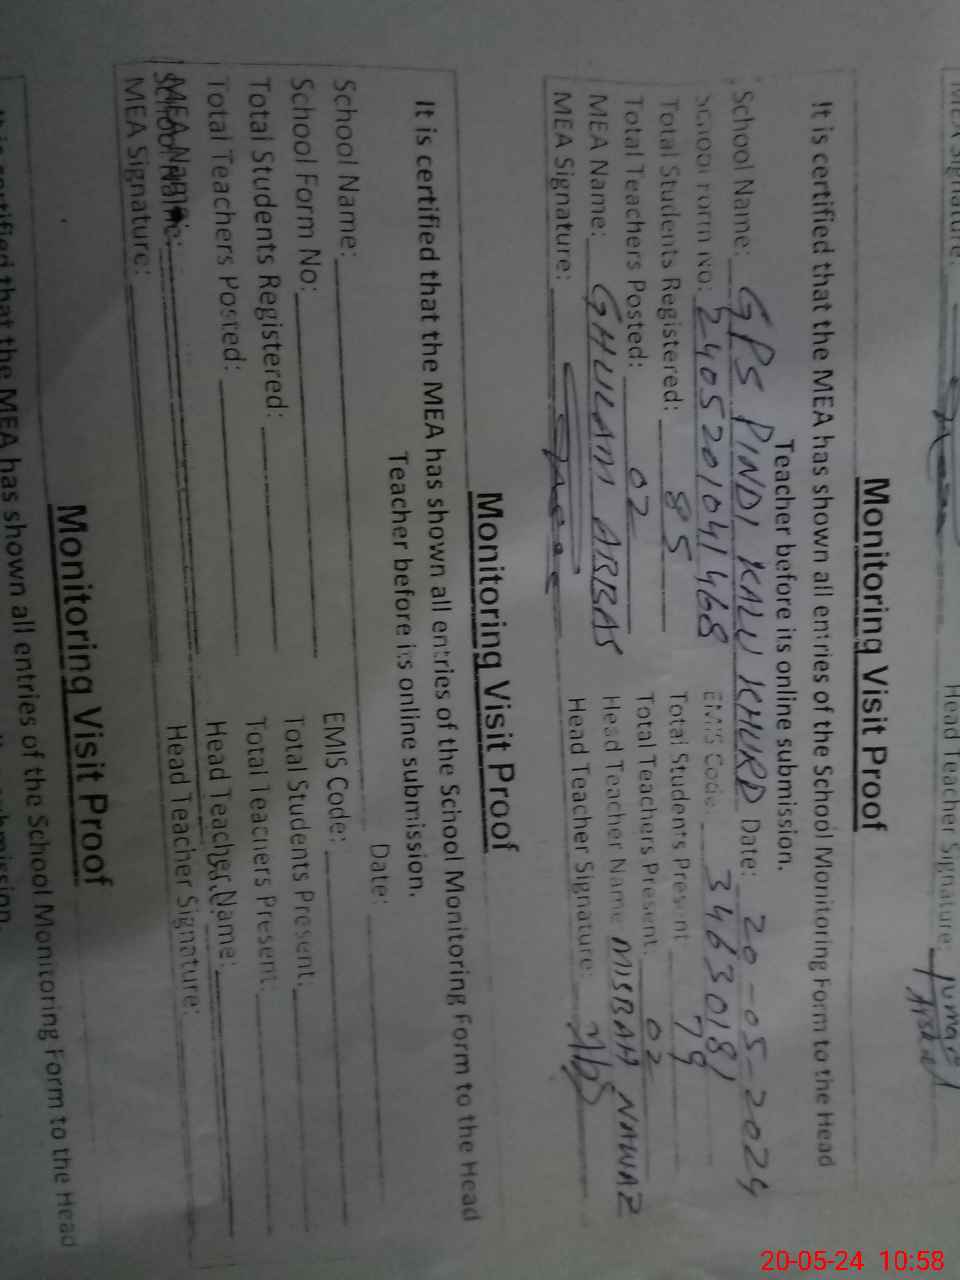 MEA Signature:
Head Teacher Signature:
Monitoring Visit Proof
It is certified that the MEA has shown all entries of the School Monitoring Form to the Head
Teacher before its online submission.
School Name: GPS PINDI KALU KHURD Date: 20-05-2024
School Form No: 2405201041468 EMIS Code: 34630181
Total Students Registered: 85 Total Students Present: 79
Total Teachers Posted: 02 Total Teachers Present: 02
MEA Name: GHULAM ABBAS Head Teacher Name: MISBAH NAWAZ
MEA Signature: Head Teacher Signature:
Monitoring Visit Proof
It is certified that the MEA has shown all entries of the School Monitoring Form to the Head
Teacher before its online submission.
School Name: Date:
School Form No: EMIS Code:
Total Students Registered: Total Students Present:
Total Teachers Posted: Total Teachers Present:
MEA Name: Head Teacher Name:
MEA Signature: Head Teacher Signature:
Monitoring Visit Proof
It is certified that the MEA has shown all entries of the School Monitoring Form to the Head
20-05-24 10:58